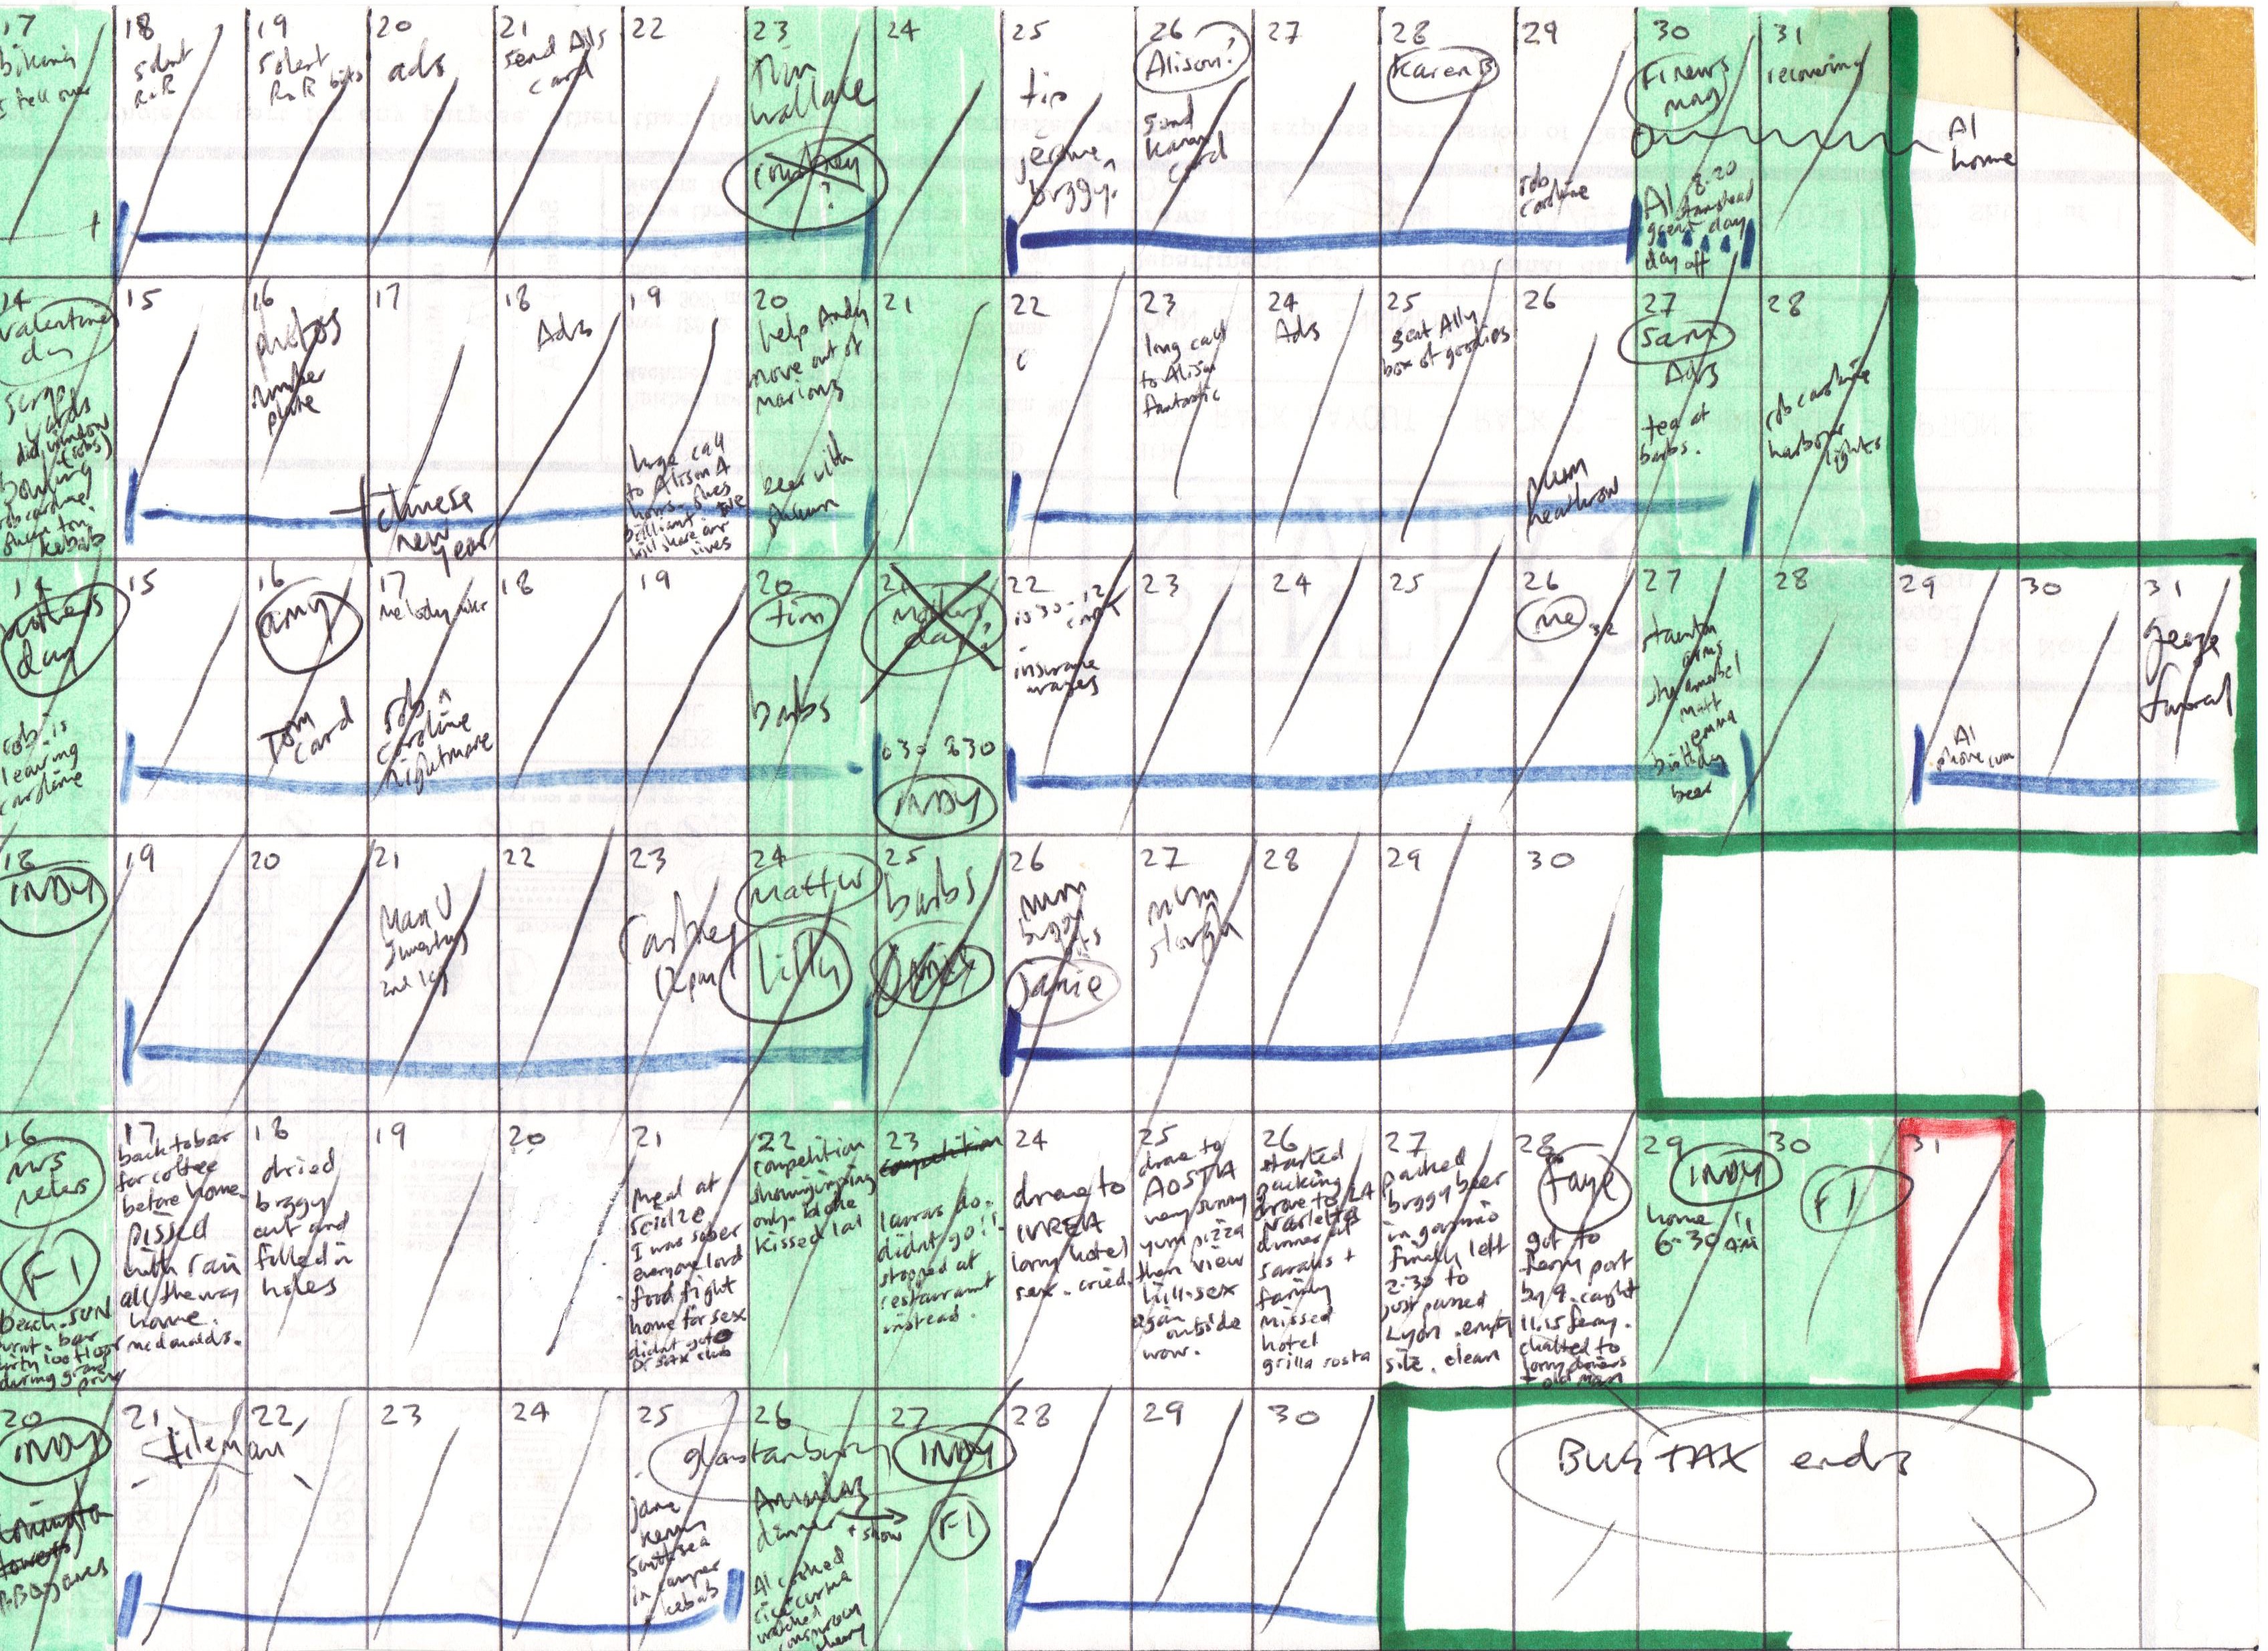 17
18
solent
R&R
19
solent
R&R bits
20
ads
21
send Als
card
22
23
Tim
wallace
24
25
tip
buggy.
26
Alison?
send
karen
card
27
28
Karen B
29
rob
caroline
30
F1 news
mag
Al 8.20
stanstead
great day
day off
31
recovering
Al
home
14
valentines
day
cards
did window
bowling
rob caroline
kebab
15
16
photos
number
plate
17
chinese
new
year
18
Ads
19
huge call
to Alison A
hours. shes
brilliant we
will share our
lives
20
help Andy
move out of
marions
beer with
shaun
21
22
23
long call
to Alison
fantastic
24
Ads
25
sent Ally
box of goodies
26
mum
heathrow
27
Sam
Ads
tea at
barbs.
28
rob caroline
harbour
lights
14
mothers
day
rob is
leaving
caroline
15
16
amy
Tom
card
17
melody mkr
rob ^
caroline
nightmare
18
19
20
tim
barbs
21
mothers
day?
630 830
INDY
22
10 30 - 12
insurance
23
24
25
26
me 32
27
staunton
arms
matt
emma
birthday
beer
28
29
Al
phone
30
31
funeral
18
INDY
19
20
21
Man U
Juventus
2nd leg
22
23
12pm
24
Matt w
Lilly
25
barbs
26
mum
buggy
bits
Jamie
27
mum
28
29
30
16
F1
beach. SUN
burnt. bar
during grand
prix
17
back to bar
for coffee
before home.
pissed
with rain
all the way
home.
mcdonalds.
18
dried
buggy
out and
filled in
holes
19
20
21
meal at
I was sober
everyone loud
food fight
home for sex
didnt go to
Dr Sax club
22
competition
kissed lal
23
competition
didnt go!!
stopped at
restaurant
instead.
24
drove to
IVREA
hotel
sex. cried.
25
drove to
AOSTA
very sunny
yum pizza
then view
hill. sex
again outside
wow.
26
started
packing
drove to LA
dinner at
sarahs +
family
missed
hotel
grilla rosta
27
packed
buggy beer
finally left
2:30 to
just passed
Lyon. empty
site. clean
28
Faye
got to
ferry port
by 9. caught
11.15 ferry.
chatted to
lorry drivers
+ old man
29
INDY
home
6-30 am
30
F1
31
20
INDY
21
tileman
22
23
24
25
glastonbury
jane
southsea
in camper
kebab
26
Amandas
dinner
+ show
Al cooked
watched
conspiracy
theory
27
INDY
F1
28
29
30
BUS TAX ends